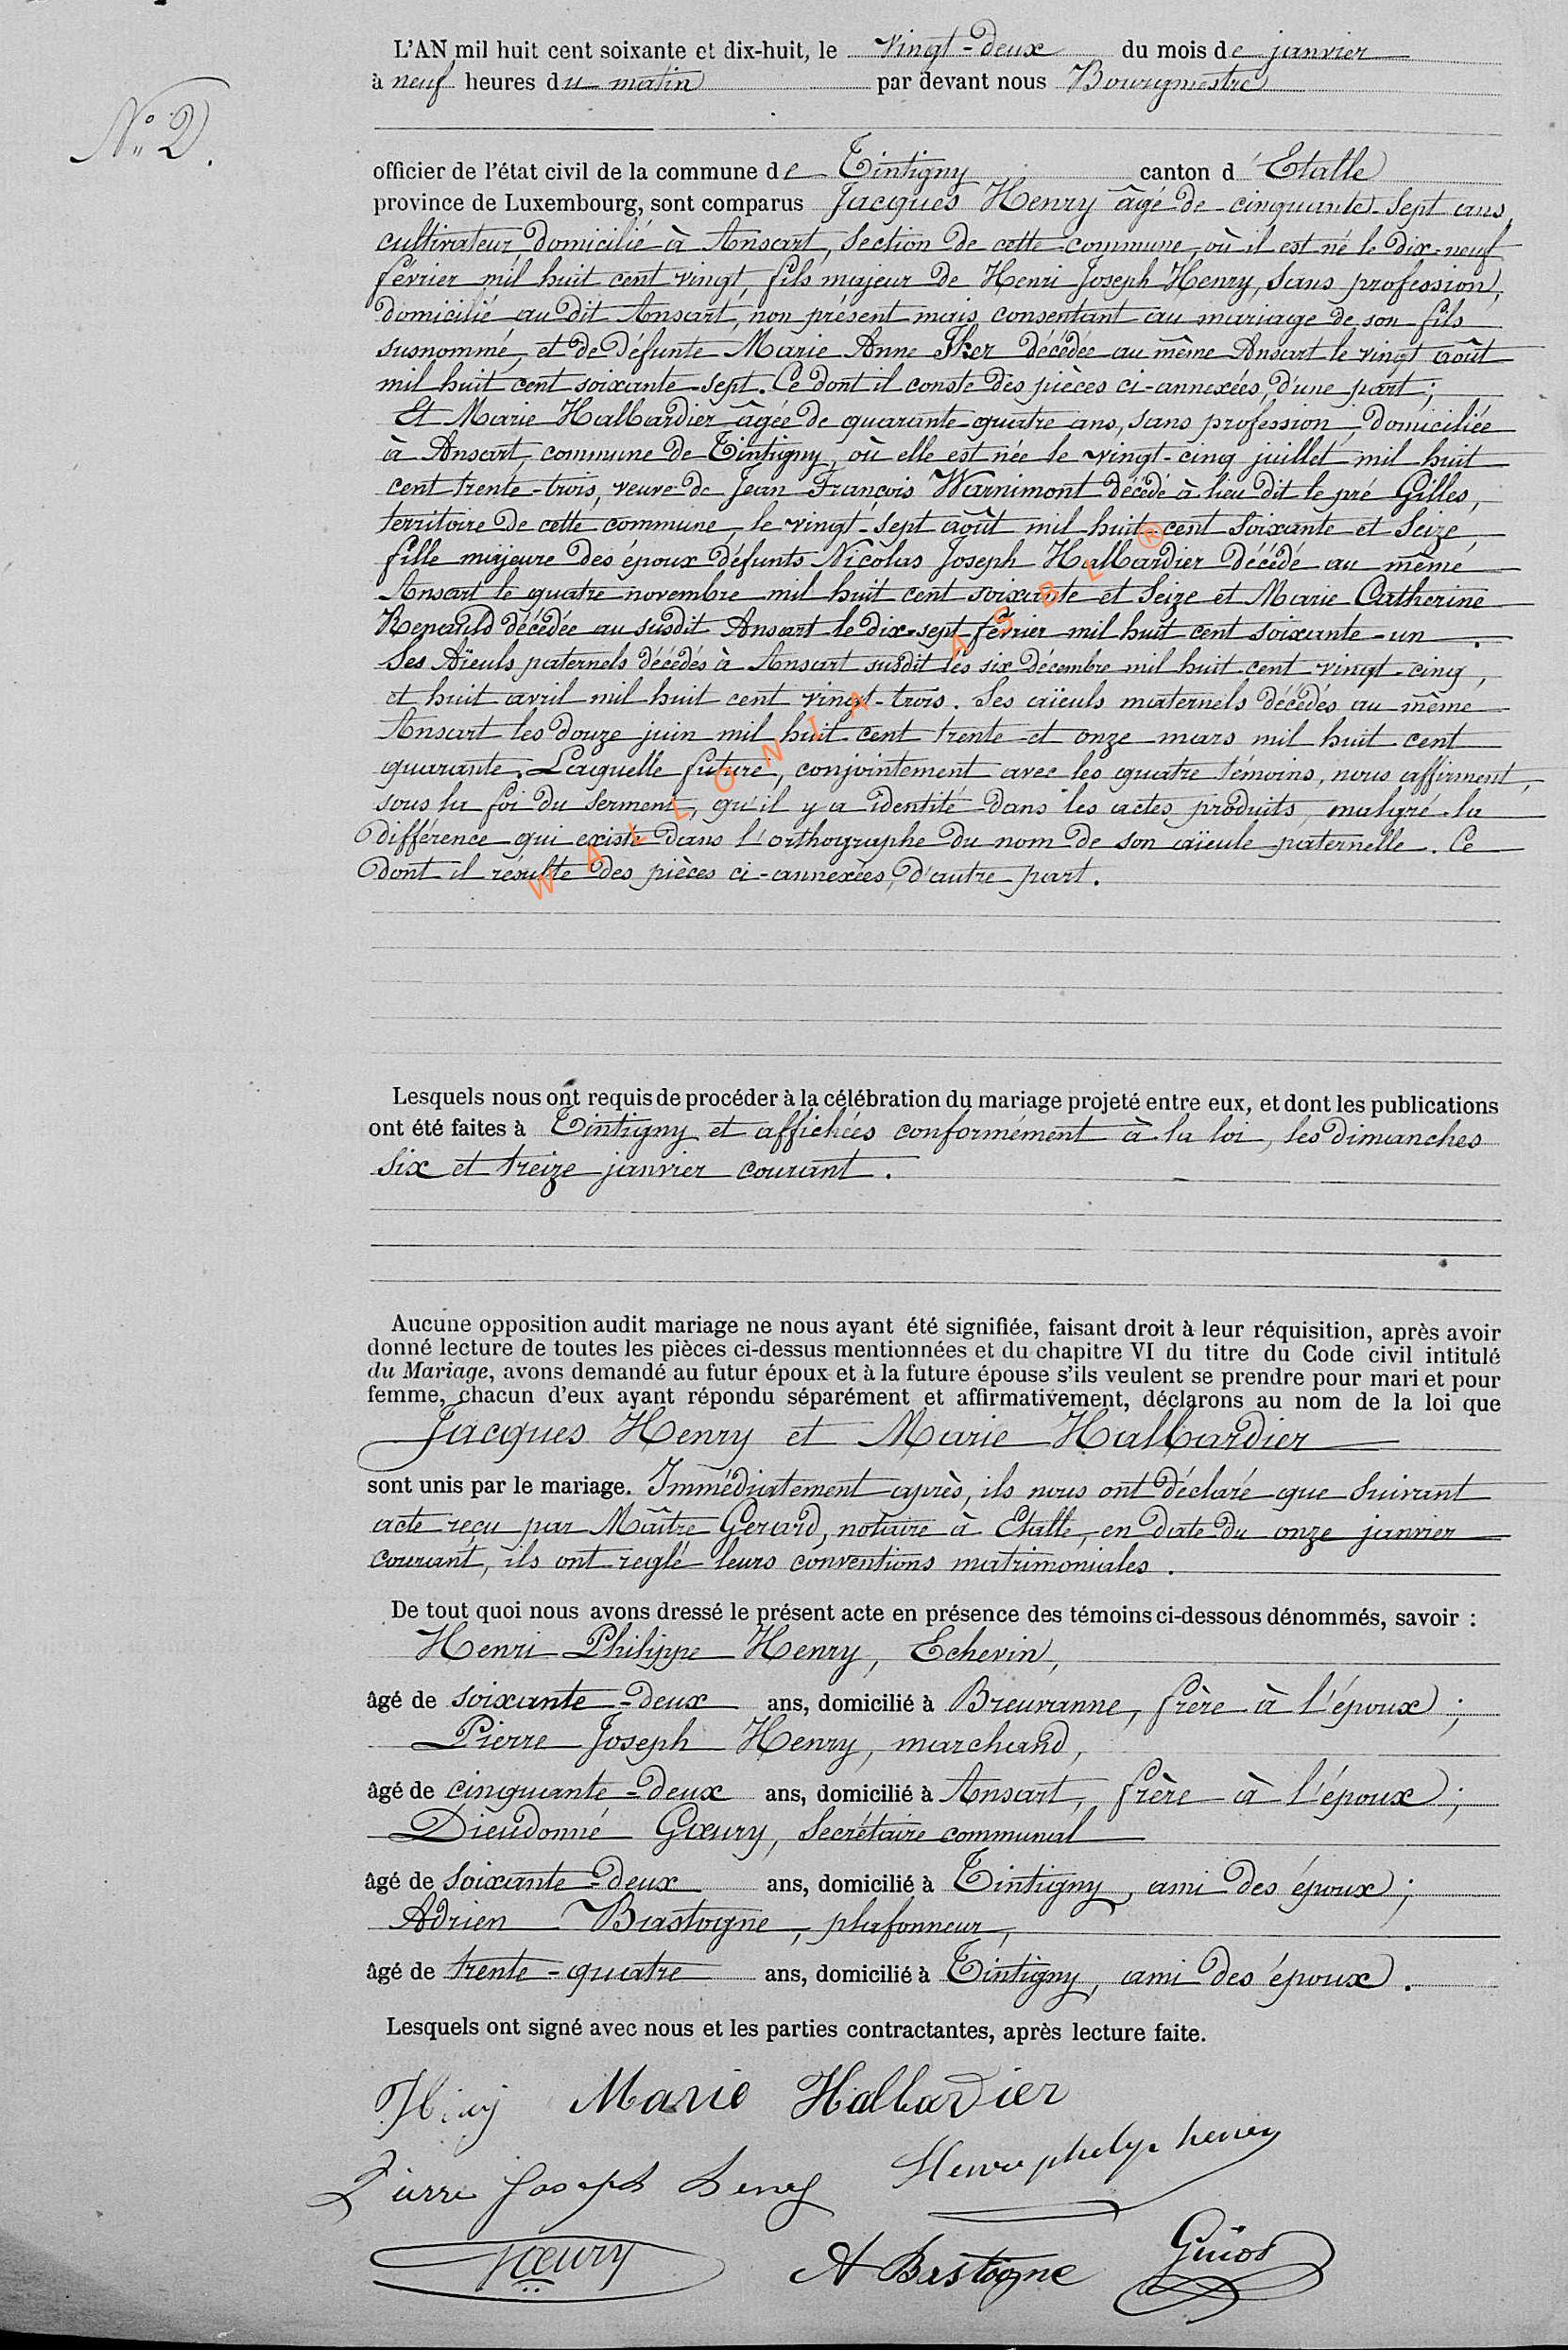 L'AN mil huit cent soixante et dix-huit, le vingt-deux du mois de janvier
à neuf heures du matin par devant nous Bourgmestre
N° 2.
officier de l'état civil de la commune de Tintigny canton d'Etalle
province de Luxembourg, sont comparus Jacques Henry âgé de cinquante-sept ans,
cultivateur, domicilié à Ansart, section de cette commune, où il est né le dix-neuf
février mil huit cent vingt, fils majeur de Henri Joseph Henry, sans profession,
domicilié au dit Ansart, non présent mais consentant au mariage de son fils
susnommé, et de défunte Marie Anne Iker décédée au même Ansart le vingt août
mil huit cent soixante-sept. Ce dont il conste des pièces ci-annexées, d'une part;
Et Marie Halbardier âgée de quarante-quatre ans, sans profession, domiciliée
à Ansart, commune de Tintigny, où elle est née le vingt-cinq juillet mil huit
cent trente-trois, veuve de Jean François Warnimont décédé à lieu dit le pré Gilles,
territoire de cette commune, le vingt-sept août mil huit cent soixante et seize,
fille majeure des époux défunts Nicolas Joseph Halbardier décédé au même
Ansart le quatre novembre mil huit cent soixante et seize et Marie Catherine
Renauld décédée au susdit Ansart le dix-sept février mil huit cent soixante-un.
Ses Aïeuls paternels décédés à Ansart susdit les six décembre mil huit cent vingt-cinq,
et huit avril mil huit cent vingt-trois. Ses aïeuls maternels décédés au même
Ansart les douze juin mil huit cent trente et onze mars mil huit cent
quarante. Laquelle future, conjointement avec les quatre témoins, nous affirment,
sous la foi du serment, qu'il y a identité dans les actes produits, malgré la
différence qui existe dans l'orthographe du nom de son aïeule paternelle. Ce
dont il résulte des pièces ci-annexées, d'autre part.
WALLONIA ASBL ®
Lesquels nous ont requis de procéder à la célébration du mariage projeté entre eux, et dont les publications
ont été faites à Tintigny et affichées conformément à la loi, les dimanches
six et treize janvier courant.
Aucune opposition audit mariage ne nous ayant été signifiée, faisant droit à leur réquisition, après avoir
donné lecture de toutes les pièces ci-dessus mentionnées et du chapitre VI du titre du Code civil intitulé
du Mariage, avons demandé au futur époux et à la future épouse s'ils veulent se prendre pour mari et pour
femme, chacun d'eux ayant répondu séparément et affirmativement, déclarons au nom de la loi que
Jacques Henry et Marie Halbardier
sont unis par le mariage. Immédiatement après, ils nous ont déclaré que suivant
acte reçu par Maître Gerard, notaire à Etalle, en date du onze janvier
courant, ils ont reglé leurs conventions matrimoniales.
De tout quoi nous avons dressé le présent acte en présence des témoins ci-dessous dénommés, savoir :
Henri Philippe Henry, Echevin,
âgé de soixante-deux ans, domicilié à Breuvanne, frère à l'époux;
Pierre Joseph Henry, marchand,
âgé de cinquante-deux ans, domicilié à Ansart, frère à l'époux;
Dieudonné Gœury, secrétaire communal
âgé de soixante-deux ans, domicilié à Tintigny, ami des époux;
Adrien Bastogne, plafonneur,
âgé de trente-quatre ans, domicilié à Tintigny, ami des époux.
Lesquels ont signé avec nous et les parties contractantes, après lecture faite.
Marie Halbardier
Pierre Joseph henry
Gœury A Bastogne